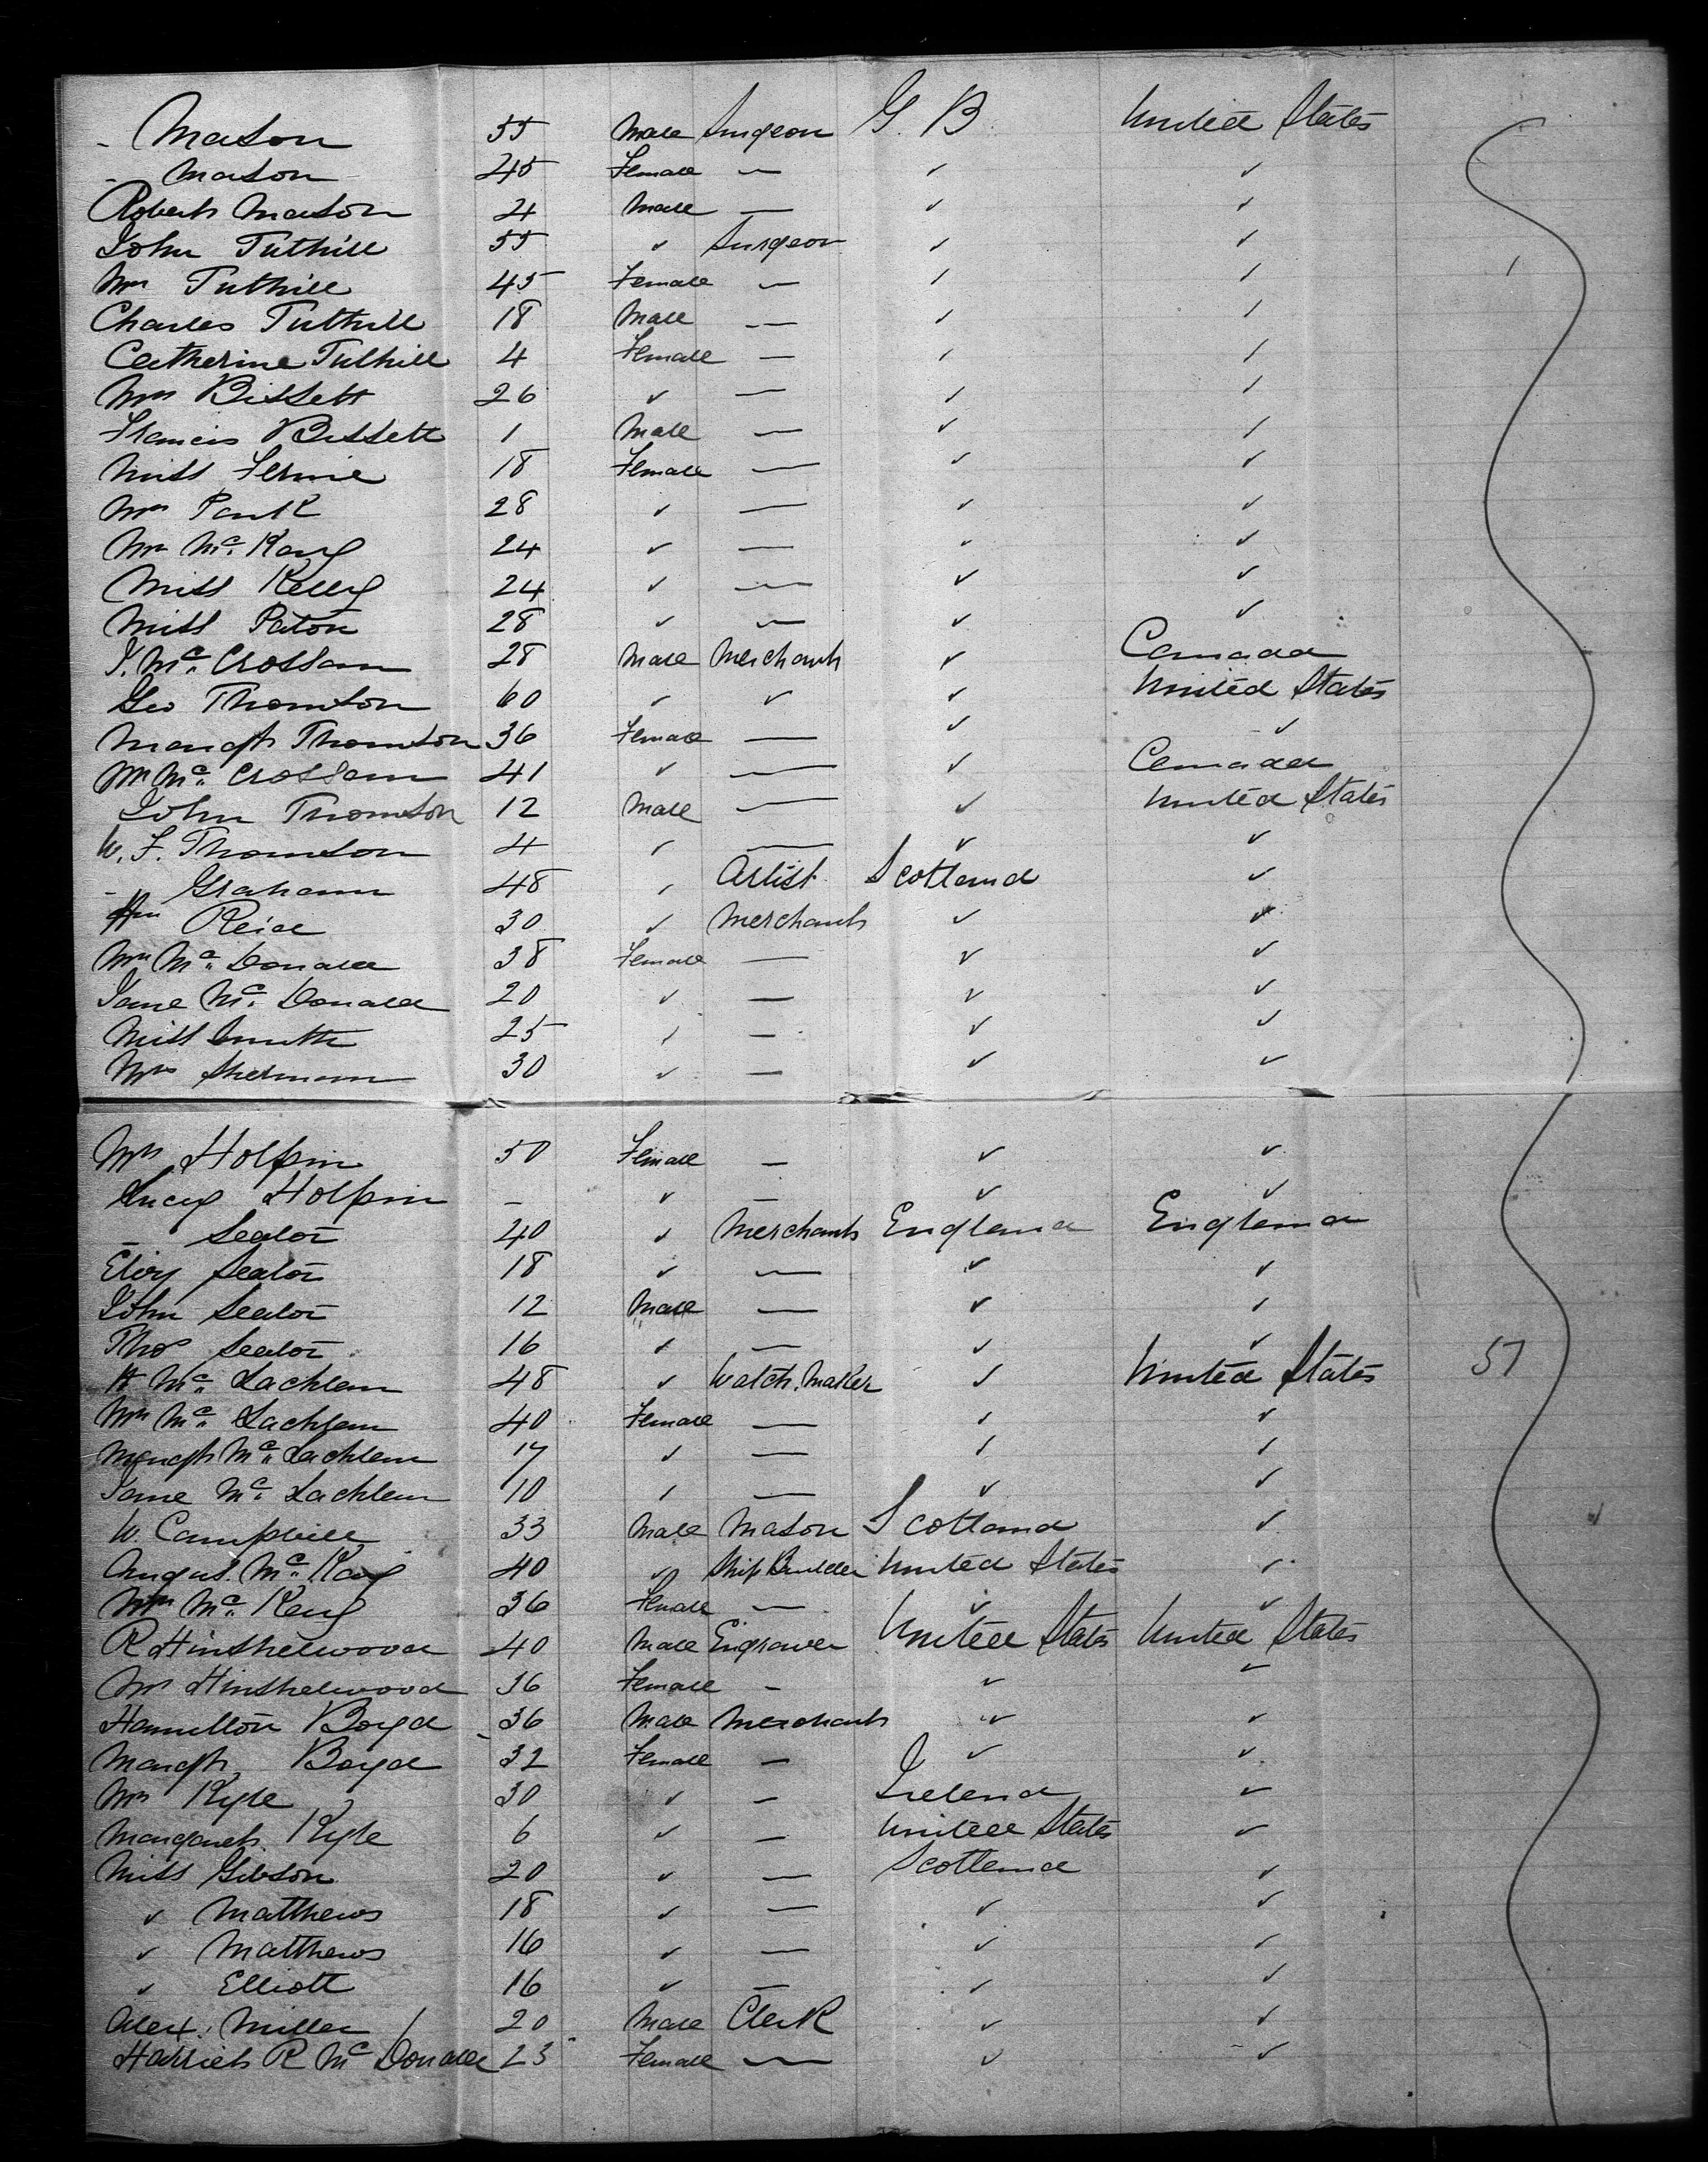 - Mason 55 Male Surgeon G. B. United States
- Mason 45 Female — ✓ ✓
Robert Mason 4 Male — ✓ ✓
John Tuthill 55 ✓ Surgeon ✓ ✓
Mrs Tuthill 45 Female — ✓ ✓
Charles Tuthill 18 Male — ✓ ✓
Catherine Tuthill 4 Female — ✓ ✓
Mrs Bissett 26 ✓ — ✓ ✓
Francis Bissett 1 Male — ✓ ✓
Miss Fernie 18 Female — ✓ ✓
Mrs Park 28 ✓ — ✓ ✓
Mrs Mc. Kay 24 ✓ — ✓ ✓
Miss Kelly 24 ✓ — ✓ ✓
Miss Paton 28 ✓ — ✓ ✓
J. Mc. Crossan 28 Male Merchant ✓ Canada
Geo Thomson 60 ✓ ✓ ✓ United States
Margt Thomson 36 Female — ✓ ✓
Mrs Mc. Crossan 41 ✓ — ✓ Canada
John Thomson 12 Male — ✓ United States
W. F. Thomson 4 ✓ — ✓ ✓
- Graham 48 ✓ Artist Scotland ✓
Reid 30 ✓ Merchant ✓ ✓
Mrs Mc. Donald 38 Female — ✓ ✓
Jane Mc. Donald 20 ✓ — ✓ ✓
Miss Smith 25 ✓ — ✓ ✓
Mrs Sherman 30 ✓ — ✓ ✓
Mrs Holfpin 50 Female — ✓ ✓
Lucy Holfpin - ✓ — ✓ ✓
- Seator 40 ✓ Merchant England England
Seator 18 ✓ — ✓ ✓
John Seator 12 Male — ✓ ✓
Thos Seator 16 ✓ — ✓ ✓
H Mc. Lachlan 48 ✓ Watch. Maker ✓ United States 57
Mrs Mc. Lachlan 40 Female — ✓ ✓
Margt Mc. Lachlan 17 ✓ — ✓ ✓
Jane Mc. Lachlan 10 ✓ — ✓ ✓
W. Campbell 33 Male Mason Scotland ✓
Angus. Mc. Kay 40 ✓ Ship Builder United States ✓
Mrs Mc. Kay 36 Female — ✓ ✓
R Hinshelwood 40 Male Engraver United States United States
Mrs Hinshelwood 36 Female - ✓ ✓
Hamilton Boyd 36 Male Merchant ✓ ✓
Margt Boyd 32 Female — ✓ ✓
Mrs Kyle 30 ✓ — Ireland ✓
Margaret Kyle 6 ✓ — United States ✓
Miss Gibson 20 ✓ — Scotland ✓
✓ Matthews 18 ✓ — ✓ ✓
✓ Matthews 16 ✓ — ✓ ✓
✓ Elliott 16 ✓ — ✓ ✓
Alex. Miller 20 Male Clerk ✓ ✓
Harriet R Mc Donald 23 Female — ✓ ✓